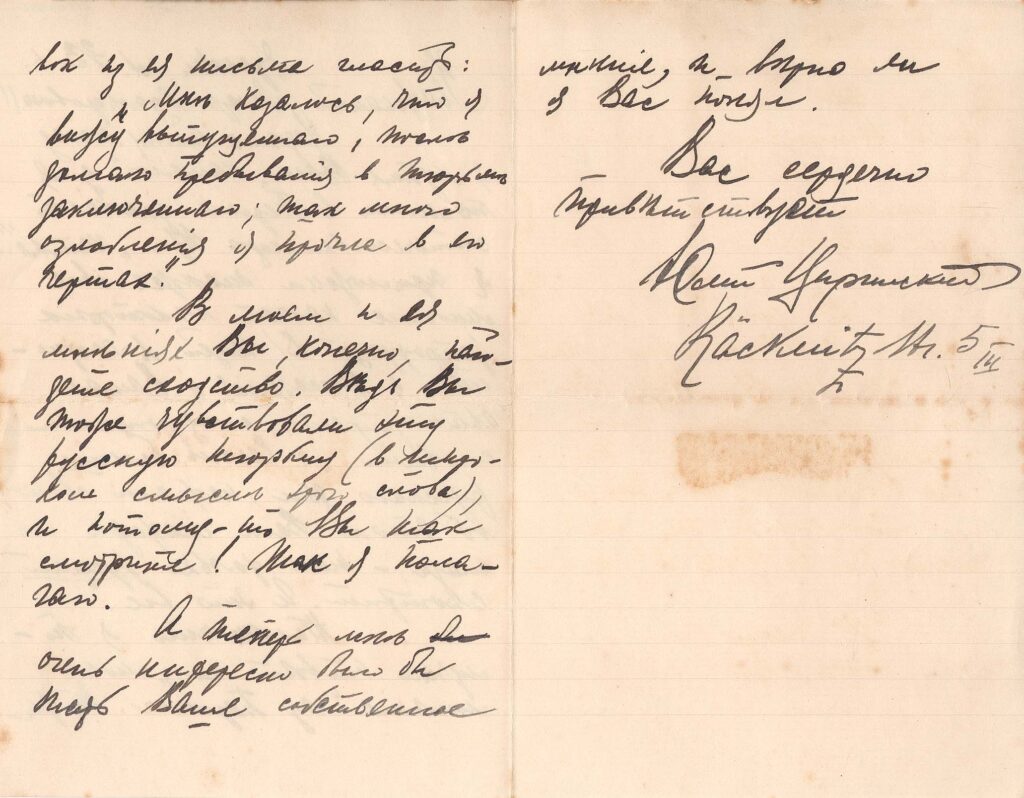 вок из ея письма гласитъ:
„Мнѣ казалось, что я
вижу выпущеннаго, послѣ
долгаго пребыванія в тюрьмѣ
заключеннаго; так много
озлобленія я прочла в его
чертах."
В моем и ея
мнѣніях Вы, конечно, най-
дете сходство. Вѣдь Вы
тоже чувствовали эту
русскую тюрьму (в широ-
ком смыслѣ этого слова),
и потому-то Вы так
смотрите! Так я пола-
гаю.
А теперь мнѣ бы
очень интересно было бы
знать Ваше собственное
мнѣніе, и вѣрно ли
я Вас понял.
Вас сердечно
привѣтствует
Юлий
Räcknitz Str. 5
III